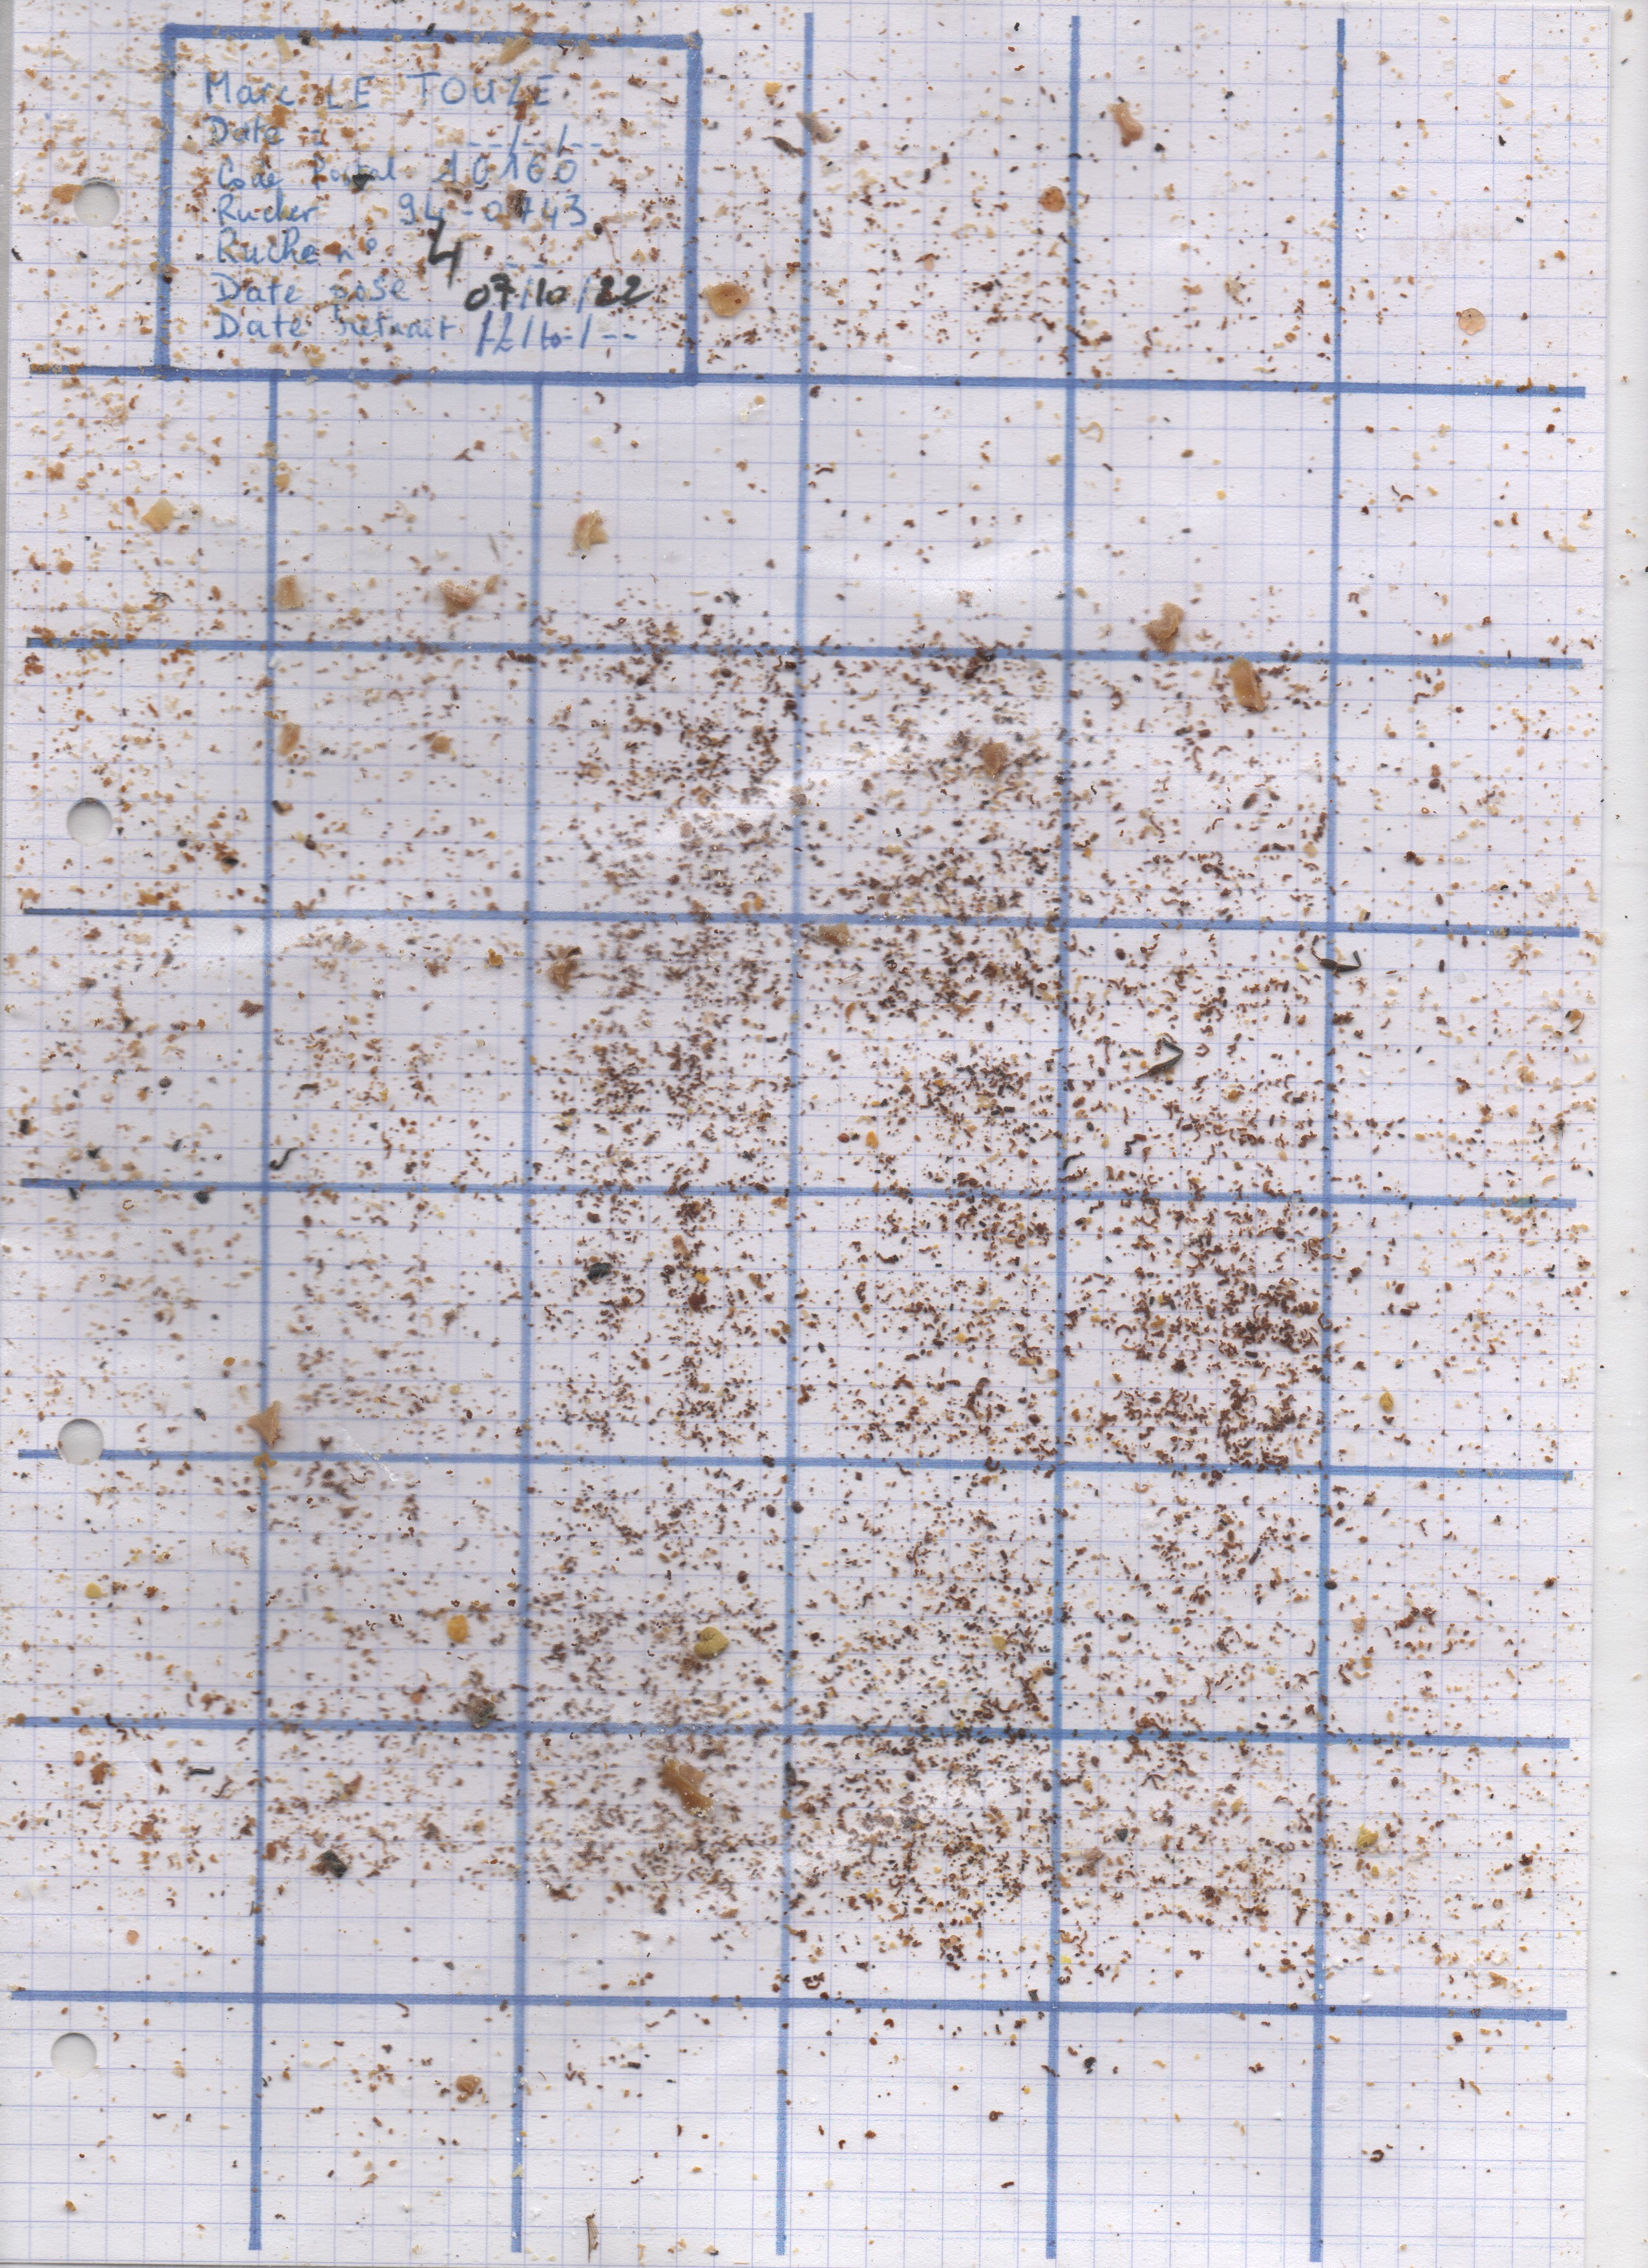 Marc LE TOUZE
Date = __/__/__
Code Postal 16160
Rucher 94-0743
Ruche n° 4 __
Date pose 07/10/22
Date retrait 12/10/__